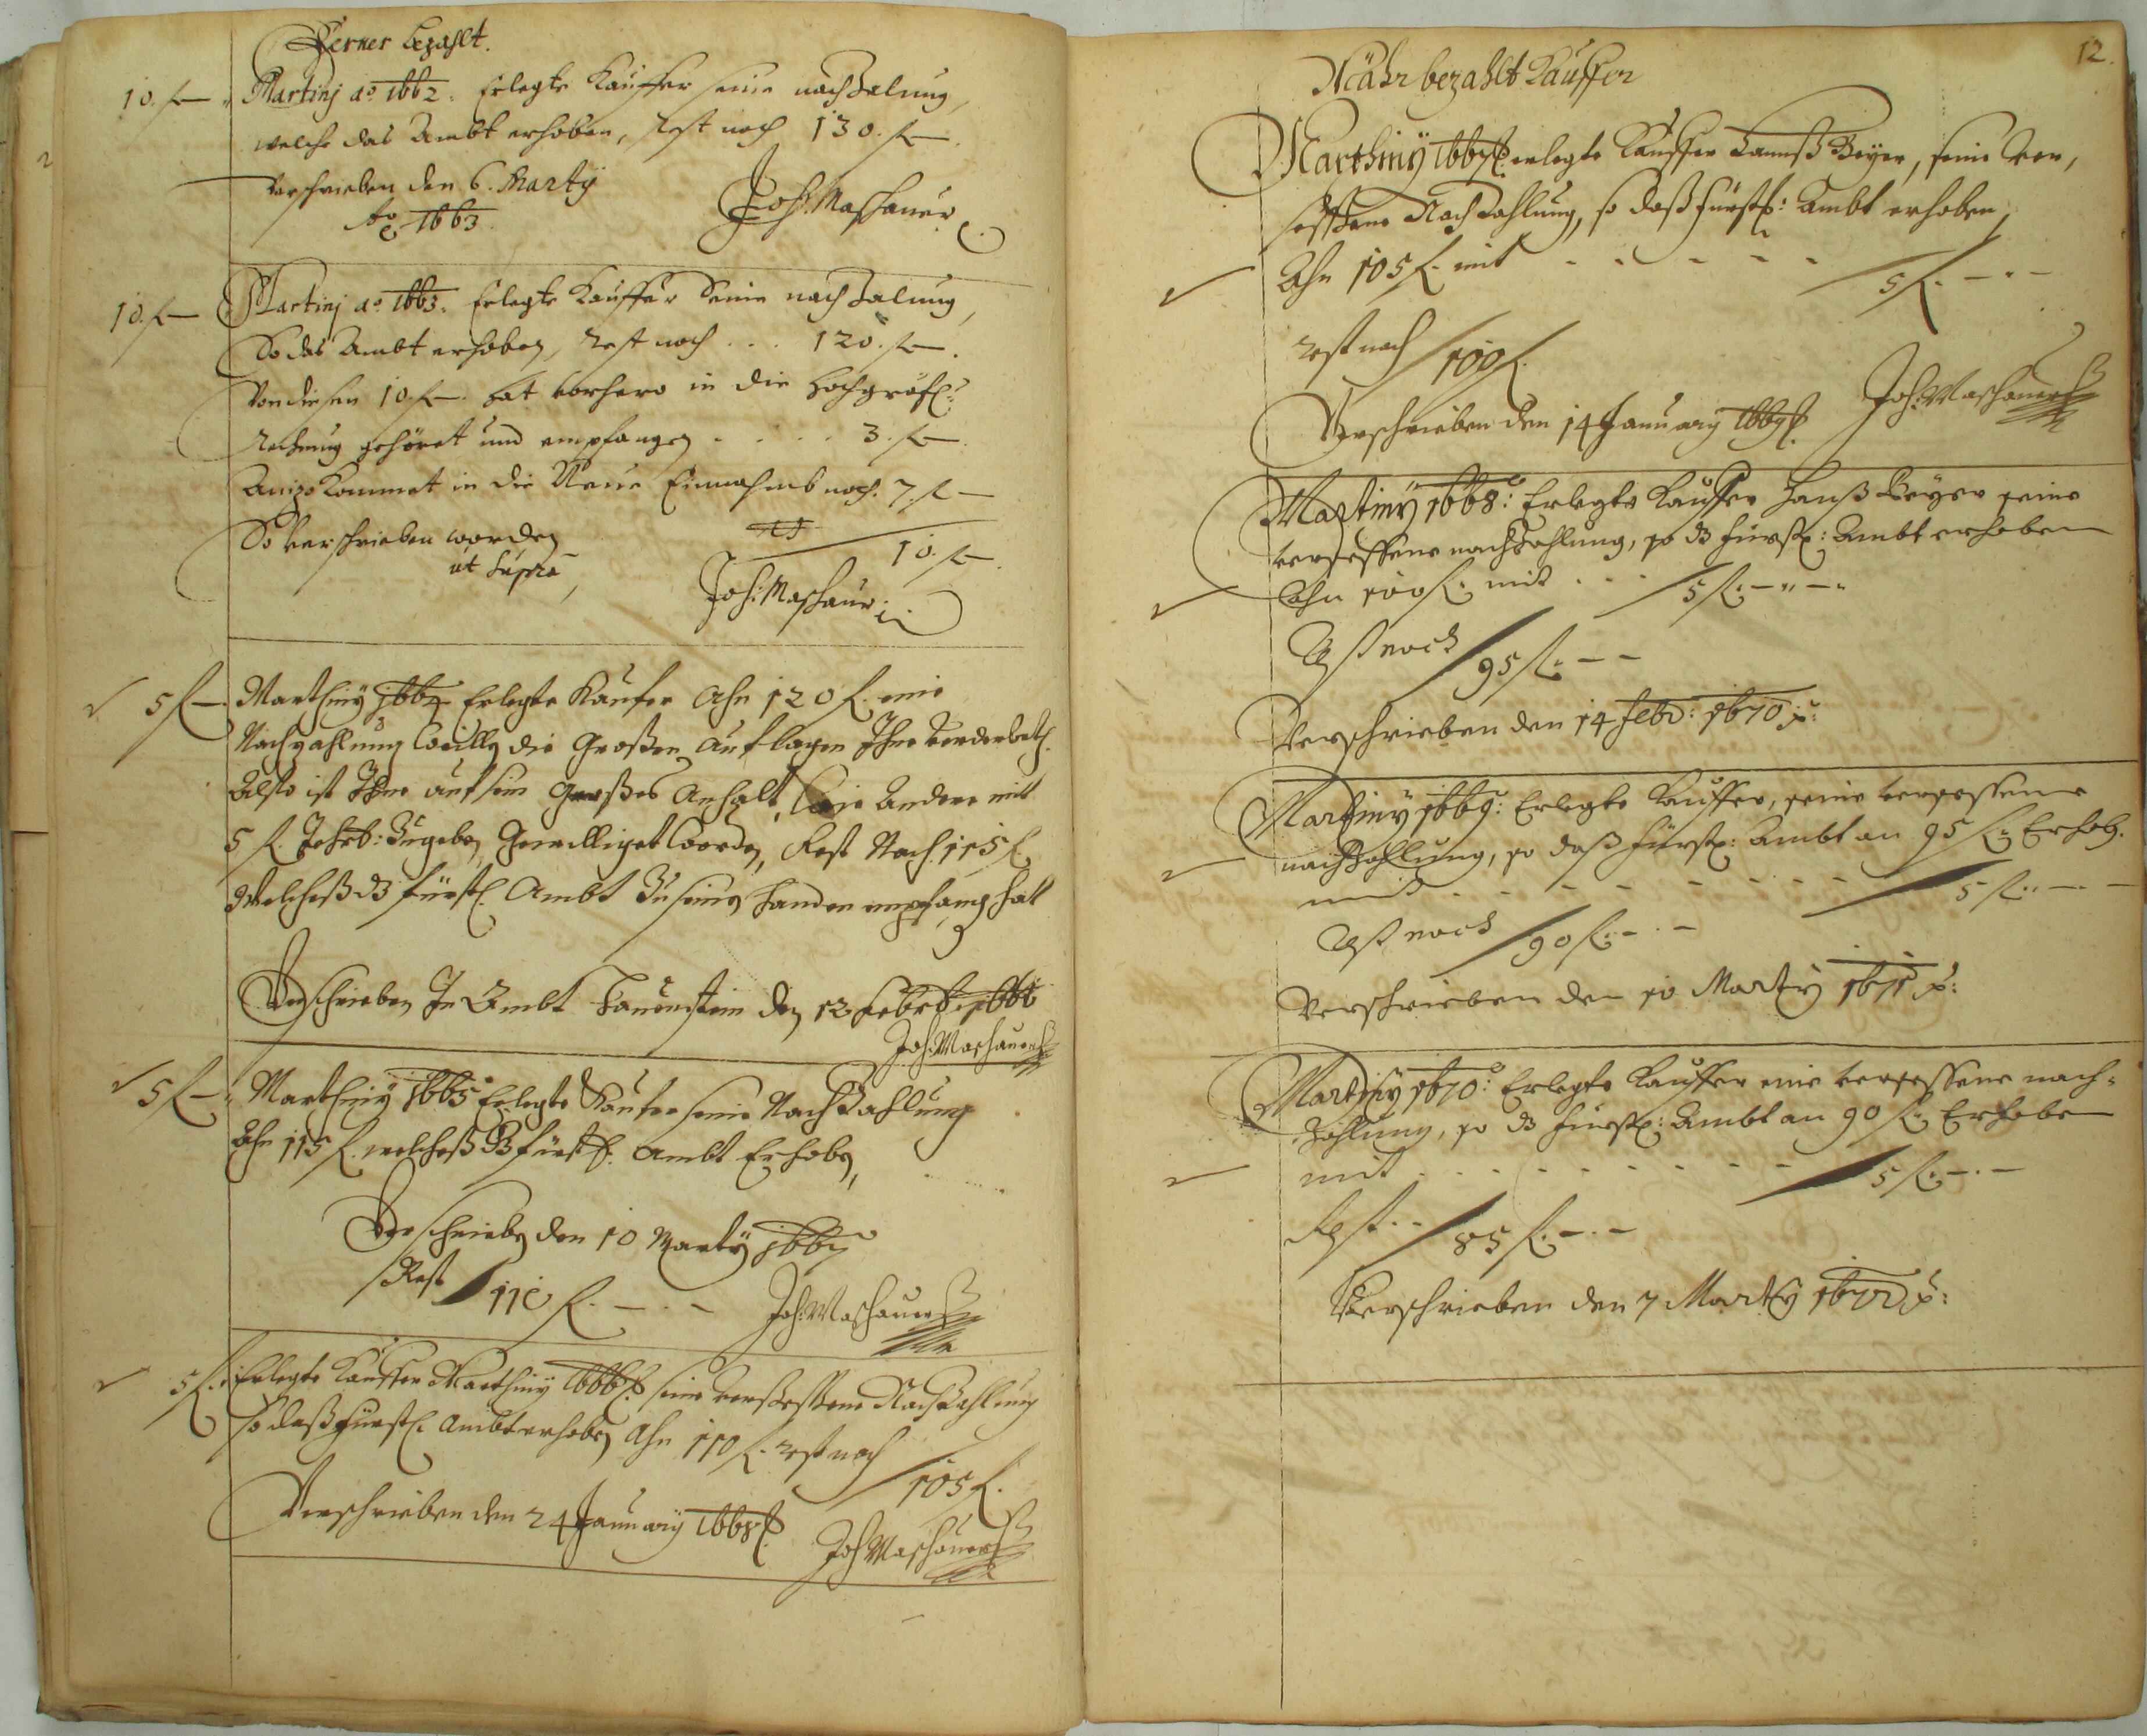 Ferner bezahlt.
10. f — Martinj ao 1662. Erlegte Kauffer seine nachzalung,
welche das Ambt erhoben, Rest noch 130. f —.
Verschrieben den 6. Martÿ
Ao 1663. Joh: Maschauer
10. f — Martinj ao 1663. Erlegte Kauffer Seine nachzalung,
So das Ambt erhoben, Rest noch . . . 120. f —.
Von diesen 10. f —. hat vorhero in die hochgräfl:
Rechnung gehöret und empfangen . . . . 3. f —.
Anizo Kommet in die Neue Einnahmb noch. 7. f —
So verschrieben worden 10. f —.
ut Supra, Joh: Maschaur
5 f — Marthiny 1664 Erlegte Kaufer Ahn 120 f. eine
Nachzahlung Weilln die Großen Auflagen Ihne
Also ist Ihne auf sein Großes Anhalt, Wie Andere mitt
5 f. Jehrl: Zugeben, Gewilliget Worden, Rest Noch 115 f
Welcheß dz fürstl. Ambt Zu seinen handen empfang hatt
Verschrieben In Ambt Hauenstein den 12 Febr: 1666
Joh: Maschauer
5 f — Marthiny 1665 Erlegte Kaufer seine NachZahlung
Ahn 115 f. welcheß dz fürstl. Ambt Erhoben,
Verschrieben den 10 Martÿ 1667
Rest 110 f. — . — Joh: Maschauer
5 f. Erlegte Kauffer Marthiny 1666 seine verseßene NachZahlung
so daß fürstl: Ambt erhoben Ahn 110 f. rest noch
105 f.
Verschrieben den 24 Januarÿ 1668
Joh Maschauer
12.
Mähr bezahlt Kauffer
Marthiny 1667 erlegte Kauffer Hannß Beyer, seine Ver,
seßene NachZahlung, so daß fürstl: Ambt erhoben,
Ahn 105 f. mit - - - - - 5 f. — . —
rest noch 100 f.
Verschrieben den 14 Januarÿ 1669 Joh: Maschauer
Martinÿ 1668: Erlegte Kauffer Hanß Beyer seine
versessene nachzahlung, so dz fürstl: Ambt erhoben
Ahn 100 f: mit . . . 5 f: — " — "
Rest noch 95 f: — —
Verschrieben den 14 Febr: 1670
Martinÿ 1669: Erlegte Kauffer, seine versessene
nachzahlung, so daß fürstl: Ambt an 95 f: Erhob.
mit - - - - - - - - 5 f: — . —
Rest noch 90 f: — . —
Verschrieben den 10 Martÿ 1671
Martinÿ 1670: Erlegte Kauffer eine versessene nach-
zahlung, so dz fürstl: Ambt an 90 f: Erhoben
mit - - - - - - - - 5 f: — . —
Rest . . 85 f: — . —
Verschrieben den 7 Martÿ 1672